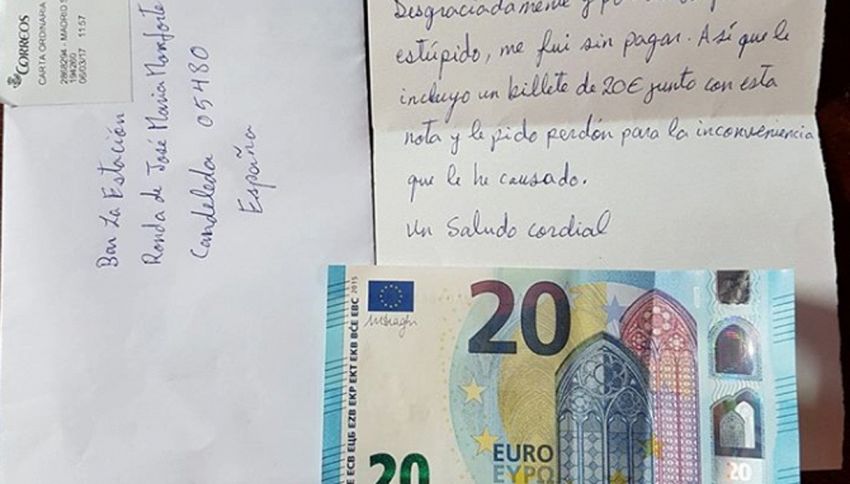 CORREOS
CARTA ORDINARIA
2868294 - MADRID S
194260
06/03/17 11:57
Bar La Estación
Ronda de José Maria Monforte
Candeleda 05480
España
Desgraciadamente y
estúpido, me fui sin pagar. Así que le
incluyo un billete de 20€ junto con esta
nota y le pido perdón para la inconveniencia
que le he causado.
Un Saludo cordial
20
EURO
ΕΥΡΩ
BCE ECB ЕЦБ EZB EKP EKT EKB BĊE EBC 2015
20
20